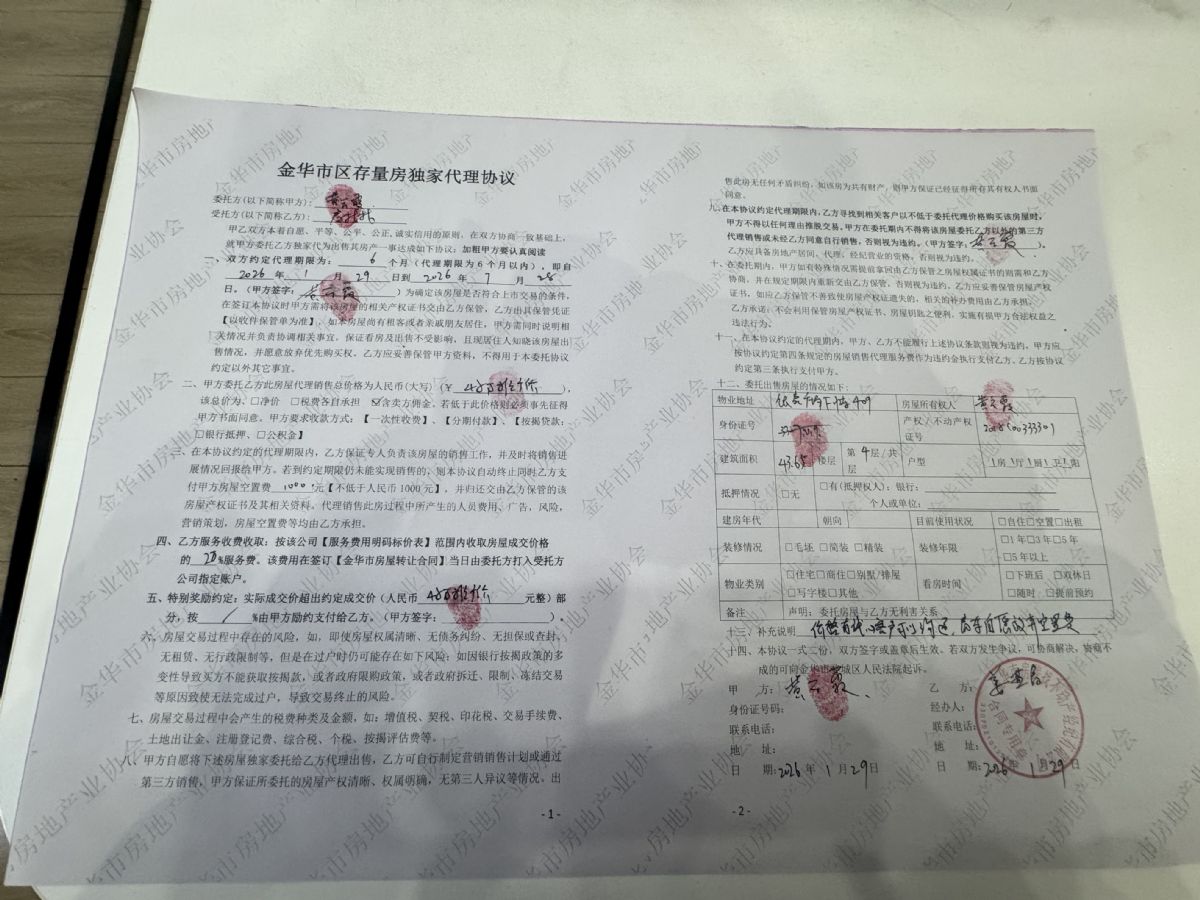 金华市区存量房独家代理协议
委托方(以下简称甲方): 黄云霞
受托方(以下简称乙方):
甲乙双方本着自愿、平等、公平、公正、诚实信用的原则,在双方协商一致基础上,
就甲方委托乙方独家代为出售其房产一事达成如下协议:加粗甲方要认真阅读
一、双方约定代理期限为: 6 个月(代理期限为6个月以内),即自
2026 年 1 月 29 日到 2026 年 7 月 28
日。(甲方签字: 黄云霞 )为确定该房屋是否符合上市交易的条件,
在签订本协议时甲方需将该房屋的相关产权证书交由乙方保管,乙方由其保管凭证
【以收件保管单为准】,如本房屋尚有租客或者亲戚朋友居住,甲方需同时说明相
关情况并负责协调相关事宜,保证看房及出售不受影响,且现居住人知晓该房屋出
售情况,并愿意放弃优先购买权。乙方应妥善保管甲方资料,不得用于本委托协议
约定以外其它事宜。
二、甲方委托乙方此房屋代理销售总价格为人民币(大写)(¥ ),
该总价为、□净价 □税费各自承担 ☑含卖方佣金。若低于此价格则必须事先征得
甲方书面同意。甲方要求收款方式:【一次性收费】、【分期付款】、【按揭贷款:
□银行抵押、□公积金】
三、在本协议约定的代理期限内,乙方保证专人负责该房屋的销售工作,并及时将销售进
展情况回报给甲方。若到约定期限仍未能实现销售的,则本协议自动终止同时乙方支
付甲方房屋空置费 1000 元【不低于人民币1000元】,并归还交由乙方保管的该
房屋产权证书及其相关资料。代理销售此房过程中所产生的人员费用、广告,风险,
营销策划,房屋空置费等均由乙方承担。
四、乙方服务收费收取:按该公司【服务费用明码标价表】范围内收取房屋成交价格
的 %服务费。该费用在签订【金华市房屋转让合同】当日由委托方打入受托方
公司指定账户。
五、特别奖励约定:实际成交价超出约定成交价(人民币 元整)部
分,按 / %由甲方励约支付给乙方。(甲方签字: )。
六、房屋交易过程中存在的风险,如:即使房屋权属清晰、无债务纠纷、无担保或查封、
无租赁、无行政限制等,但是在过户时仍可能存在如下风险:如因银行按揭政策的多
变性导致买方不能获取按揭款,或者政府限购政策,或者政府拆迁、限制、冻结交易
等原因致使无法完成过户,导致交易终止的风险。
七、房屋交易过程中会产生的税费种类及金额,如:增值税、契税、印花税、交易手续费、
土地出让金、注册登记费、综合税、个税、按揭评估费等。
八、甲方自愿将下述房屋独家委托给乙方代理出售,乙方可自行制定营销销售计划或通过
第三方销售,甲方保证所委托的房屋产权清晰、权属明确,无第三人异议等情况。出
- 1 -
售此房无任何矛盾纠纷,如该房为共有财产,则甲方保证已经征得所存其有权人书面
同意。
九、在本协议约定代理期限内,乙方寻找到相关客户以不低于委托代理价格购买该房屋时,
甲方不得以任何理由推脱交易,甲方在委托期内不得将该房屋委托乙方以外的第三方
代理销售或未经乙方同意自行销售,否则视为违约。(甲方签字: 黄云霞 )。
乙方应具备房地产居间、代理、经纪营业的资格,否则视为违约。
十、在委托期内,甲方如有特殊情况需提前拿回由乙方保管之房屋权属证书的则需和乙方
协商,并在规定期限内重新交由乙方保管,否则视为违约。乙方应妥善保管房屋产权
证书,如应乙方保管不善致使房屋产权证遗失的,相关的补办费用由乙方承担。
乙方承诺:不会利用保管房屋产权证书、房屋钥匙之便利,实施有损甲方合法权益之
违法行为。
十一、在本协议约定的代理期内,甲方、乙方不能履行上述协议条款则视为违约,甲方应
按协议约定第四条规定的房屋销售代理服务费作为违约金执行支付乙方。乙方按协议
约定第三条执行支付甲方。
十二、委托出售房屋的情况如下:
物业地址 房屋所有权人 黄云霞
身份证号 产权/不动产权证号
建筑面积 43.65 楼层 第 4 层/共 层 户型 1房1厅1厨1卫1阳
抵押情况 □无 □有(抵押权人):银行:
个人或单位:
建房年代 朝向 目前使用状况 □自住□空置□出租
装修情况 □毛坯 □简装 □精装 装修年限 □1年□3年□5年
□5年以上
物业类别 □住宅□商住□别墅/排屋 看房时间 □下班后 □双休日
□写字楼□其他 □随时 □提前预约
备注 声明:委托房屋与乙方无利害关系
十三、补充说明
十四、本协议一式二份,双方签字或盖章后生效。若双方发生争议,可协商解决,协商不
成的可向金华市婺城区人民法院起诉。
甲 方: 黄云霞 乙 方:
身份证号码: 经办人:
联系电话: 联系电话:
地 址: 地 址:
日 期: 2026 年 1 月 29 日 日 期: 2026 1 月 29 日
- 2 -